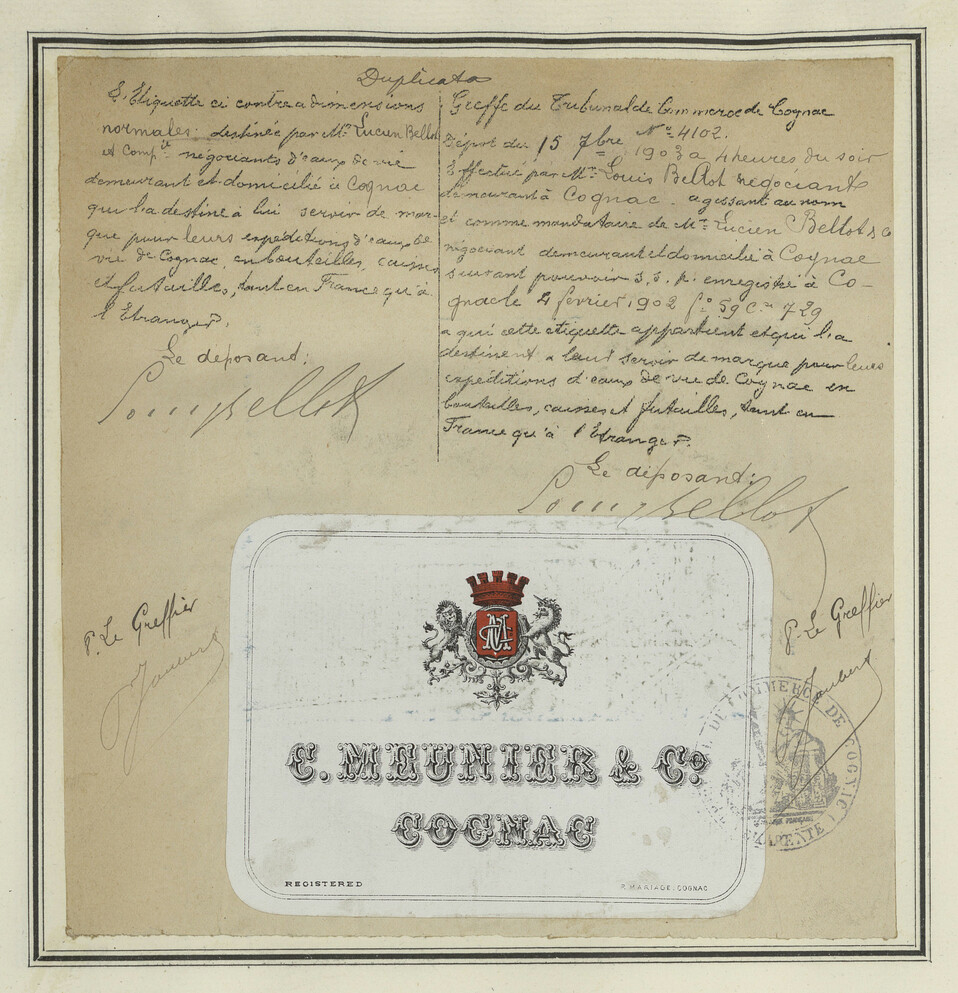 Duplicata
L'Etiquette ci contre a dimensions
normales. destinée par Mr. Lucien Bellot
et Compie négociants d'eaux de vie
demeurant et domicilié à Cognac
qui la destine à lui servir de mar-
que pour leurs expéditions d'eaux de
vie de Cognac, en bouteilles, caisses
et futailles, tant en France qu'à
l'Etranger.
Le déposant:
Louis Bellot
Greffe du Tribunal de Commerce de Cognac
Dépot du 15 7bre No 4102.
1903 a 4 heures du soir
Effectué par Mr. Louis Bellot négociant
demeurant à Cognac. agissant au nom
et comme mandataire de Mr. Lucien Bellot & Co
négociant demeurant et domicilié à Cognac
suivant pouvoir s. s. p. enregistré à Co-
gnac le 4 février 1902 fo 59 Ce 729
a qui cette étiquette appartient et qui la
destinent a leur servir de marque pour leurs
expéditions d'eaux de vie de Cognac en
bouteilles, caisses et futailles, tant en
France qu'à l'Etranger.
Le déposant:
Louis Bellot
P. Le Greffier
Jaubert
P. Le Greffier
Jaubert
CM
C. MEUNIER & Co.
COGNAC
REGISTERED
R. MARIADE. COGNAC
TRIBUNAL DE COMMERCE DE COGNAC
CHARENTE